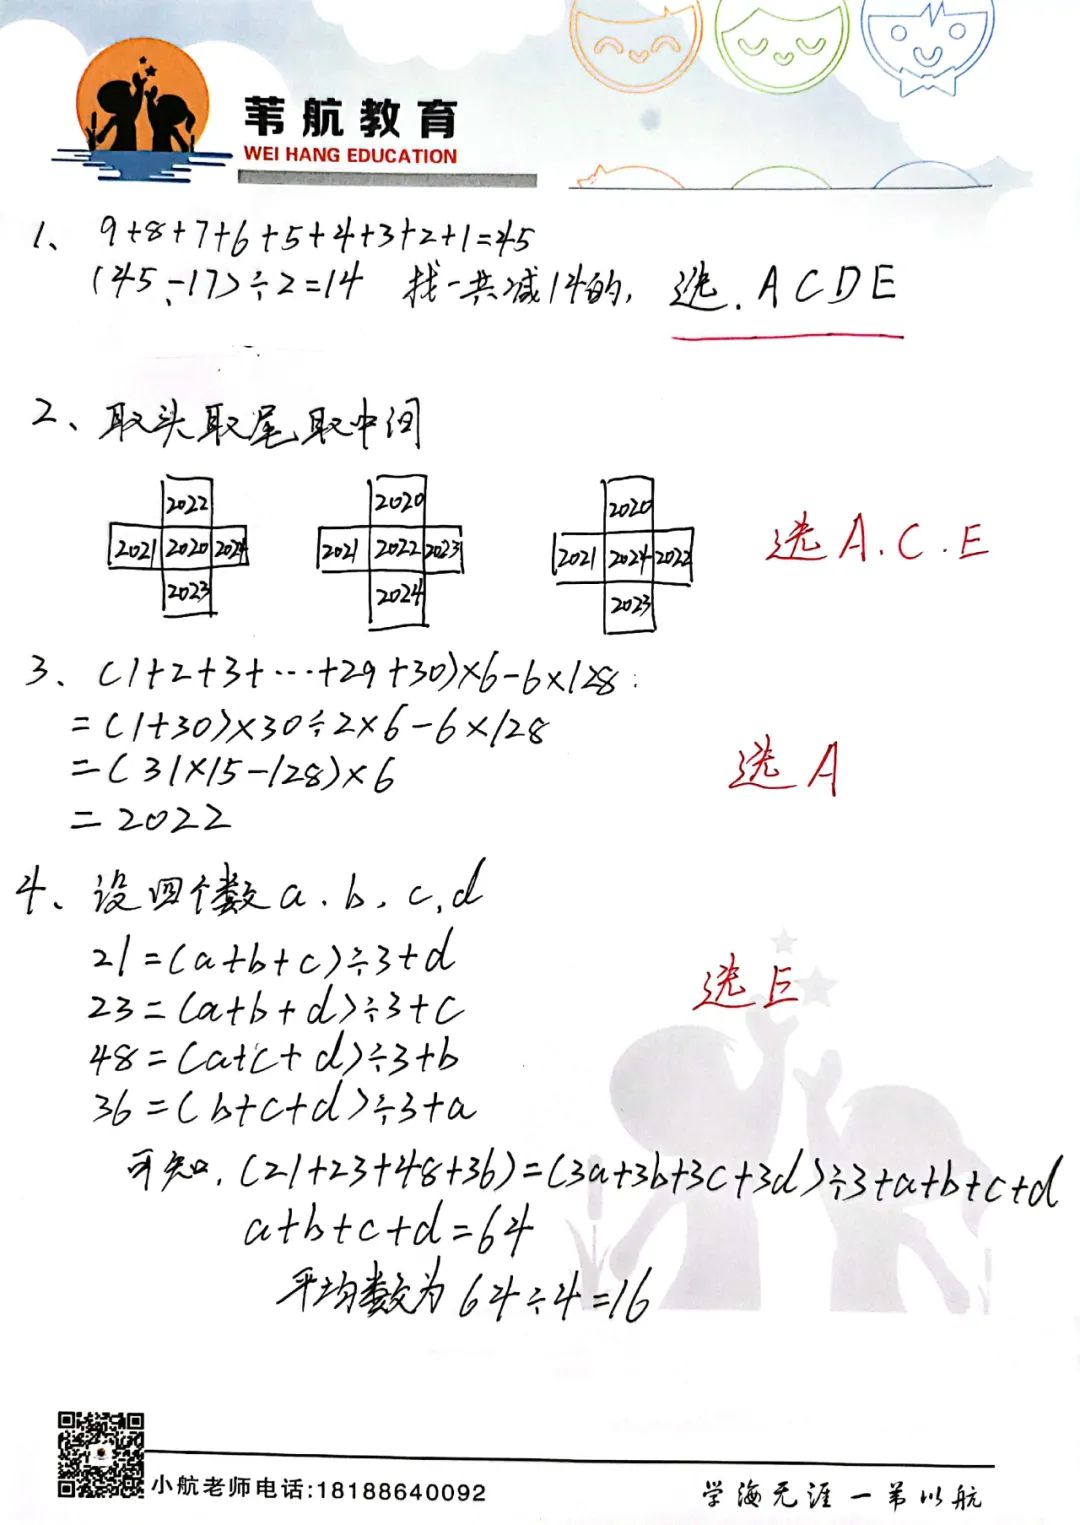 苇航教育
WEI HANG EDUCATION
1、 9+8+7+6+5+4+3+2+1=45
(45-17)÷2=14 找一共减14的, 选.ACDE
2、取头取尾取中间
2022
2021 2020 2024
2023
2020
2021 2022 2023
2024
2020
2021 2024 2022
2023
选A.C.E
3、(1+2+3+…+29+30)×6-6×128
=(1+30)×30÷2×6-6×128
=(31×15-128)×6
=2022
选A
4、设四个数a.b.c,d
21=(a+b+c)÷3+d
23=(a+b+d)÷3+c
48=(a+c+d)÷3+b
36=(b+c+d)÷3+a
选E
可知,(21+23+48+36)=(3a+3b+3c+3d)÷3+a+b+c+d
a+b+c+d=64
平均数为64÷4=16
小航老师电话:18188640092
学海无涯一苇以航